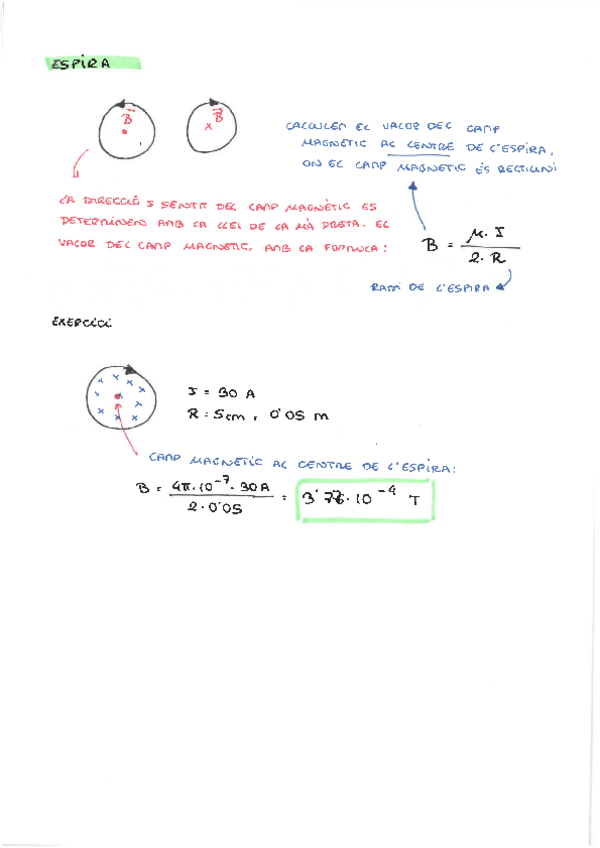 ESPIRA
B
B
CALCULEM EL VALOR DEL CAMP
MAGNÈTIC AL CENTRE DE L'ESPIRA,
ON EL CAMP MAGNETIC ÉS RECTILINI
LA DIRECCIÓ I SENTIT DEL CAMP MAGNÈTIC ES
DETERMINEN AMB LA LLEI DE LA MÀ DRETA. EL
VALOR DEL CAMP MAGNETIC, AMB LA FORMULA:
B = μ·I / 2·R
RADI DE L'ESPIRA
EXERCICI
I = 30 A
R = 5cm, 0'05 m
CAMP MAGNETIC AL CENTRE DE L'ESPIRA:
B = 4π·10⁻⁷·30A / 2·0'05 = 3'76·10⁻⁴ T